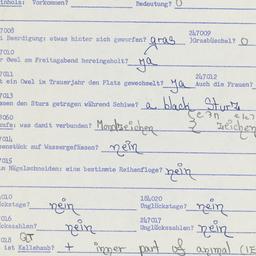 inhols: Vorkommen? Bedeutung? 0
7008 247009
i Beerdigung: etwas hinter sich geworfen? gras )Grasbüschel? 0
7010
r Owel am Freitagabend hereingeholt? ya
7011 247012
t ein Owel im Trauerjahr den Platz gewechselt? ya Auch die Frauen?
7013
ssen den Sturz getragen während Schiwe? a black Sturz
3050
nfs: was damit verbunden? Mondzeichen zeichen
7014
senstück auf Wassergefässen? nein
7015
im Nägelschneiden: eine bestimmte Reihenfolge? nein
4010 184020
ückstage? nein Unglückstage? nein
7016 247017
ückszahlen? nein Unglückszahlen? nein
4018 GT
ist Kallehanb? + inner part of animal (IE